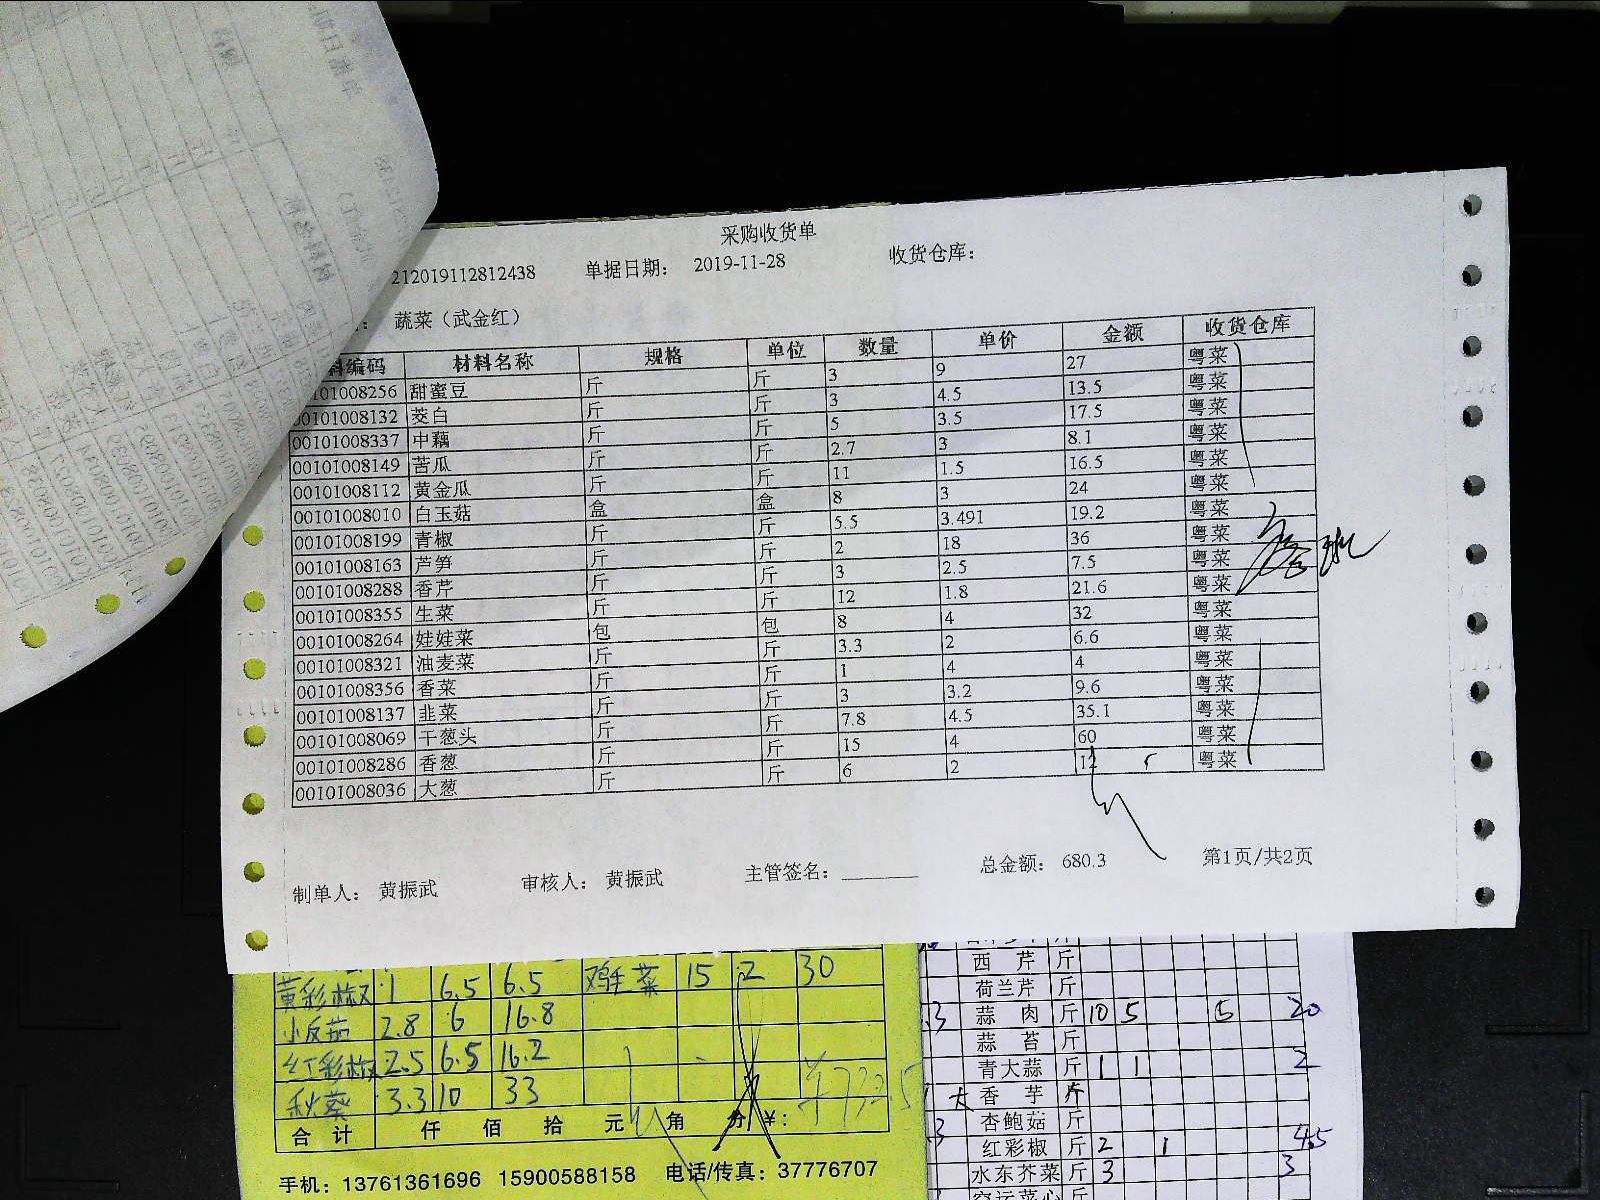 采购收货单
212019112812438 单据日期： 2019-11-28 收货仓库：
蔬菜（武金红）
编码 材料名称 规格 单位 数量 单价 金额 收货仓库
0101008256 甜蜜豆 斤 斤 3 9 27 粤菜
00101008132 茭白 斤 斤 3 4.5 13.5 粤菜
00101008337 中藕 斤 斤 5 3.5 17.5 粤菜
00101008149 苦瓜 斤 斤 2.7 3 8.1 粤菜
00101008112 黄金瓜 斤 斤 11 1.5 16.5 粤菜
00101008010 白玉菇 盒 盒 8 3 24 粤菜
00101008199 青椒 斤 斤 5.5 3.491 19.2 粤菜
00101008163 芦笋 斤 斤 2 18 36 粤菜
00101008288 香芹 斤 斤 3 2.5 7.5 粤菜
00101008355 生菜 斤 斤 12 1.8 21.6 粤菜
00101008264 娃娃菜 包 包 8 4 32 粤菜
00101008321 油麦菜 斤 斤 3.3 2 6.6 粤菜
00101008356 香菜 斤 斤 1 4 4 粤菜
00101008137 韭菜 斤 斤 3 3.2 9.6 粤菜
00101008069 干葱头 斤 斤 7.8 4.5 35.1 粤菜
00101008286 香葱 斤 斤 15 4 60 粤菜
00101008036 大葱 斤 斤 6 2 12 粤菜
制单人： 黄振武 审核人： 黄振武 主管签名： 总金额： 680.3 第1页/共2页
黄彩椒 1 6.5 6.5 鸡毛菜 15 2 30
小皮茄 2.8 6 16.8
红彩椒 2.5 6.5 16.2
秋葵 3.3 10 33
合计 仟 佰 拾 元 角 分 ¥：
手机：13761361696 15900588158 电话/传真：37776707
西芹 斤
荷兰芹 斤
蒜肉 斤 10 5 5 20
蒜苔 斤
青大蒜 斤 1 1 2
香芋 斤
杏鲍菇 斤
红彩椒 斤 2 1 4.5
水东芥菜 斤 3 3